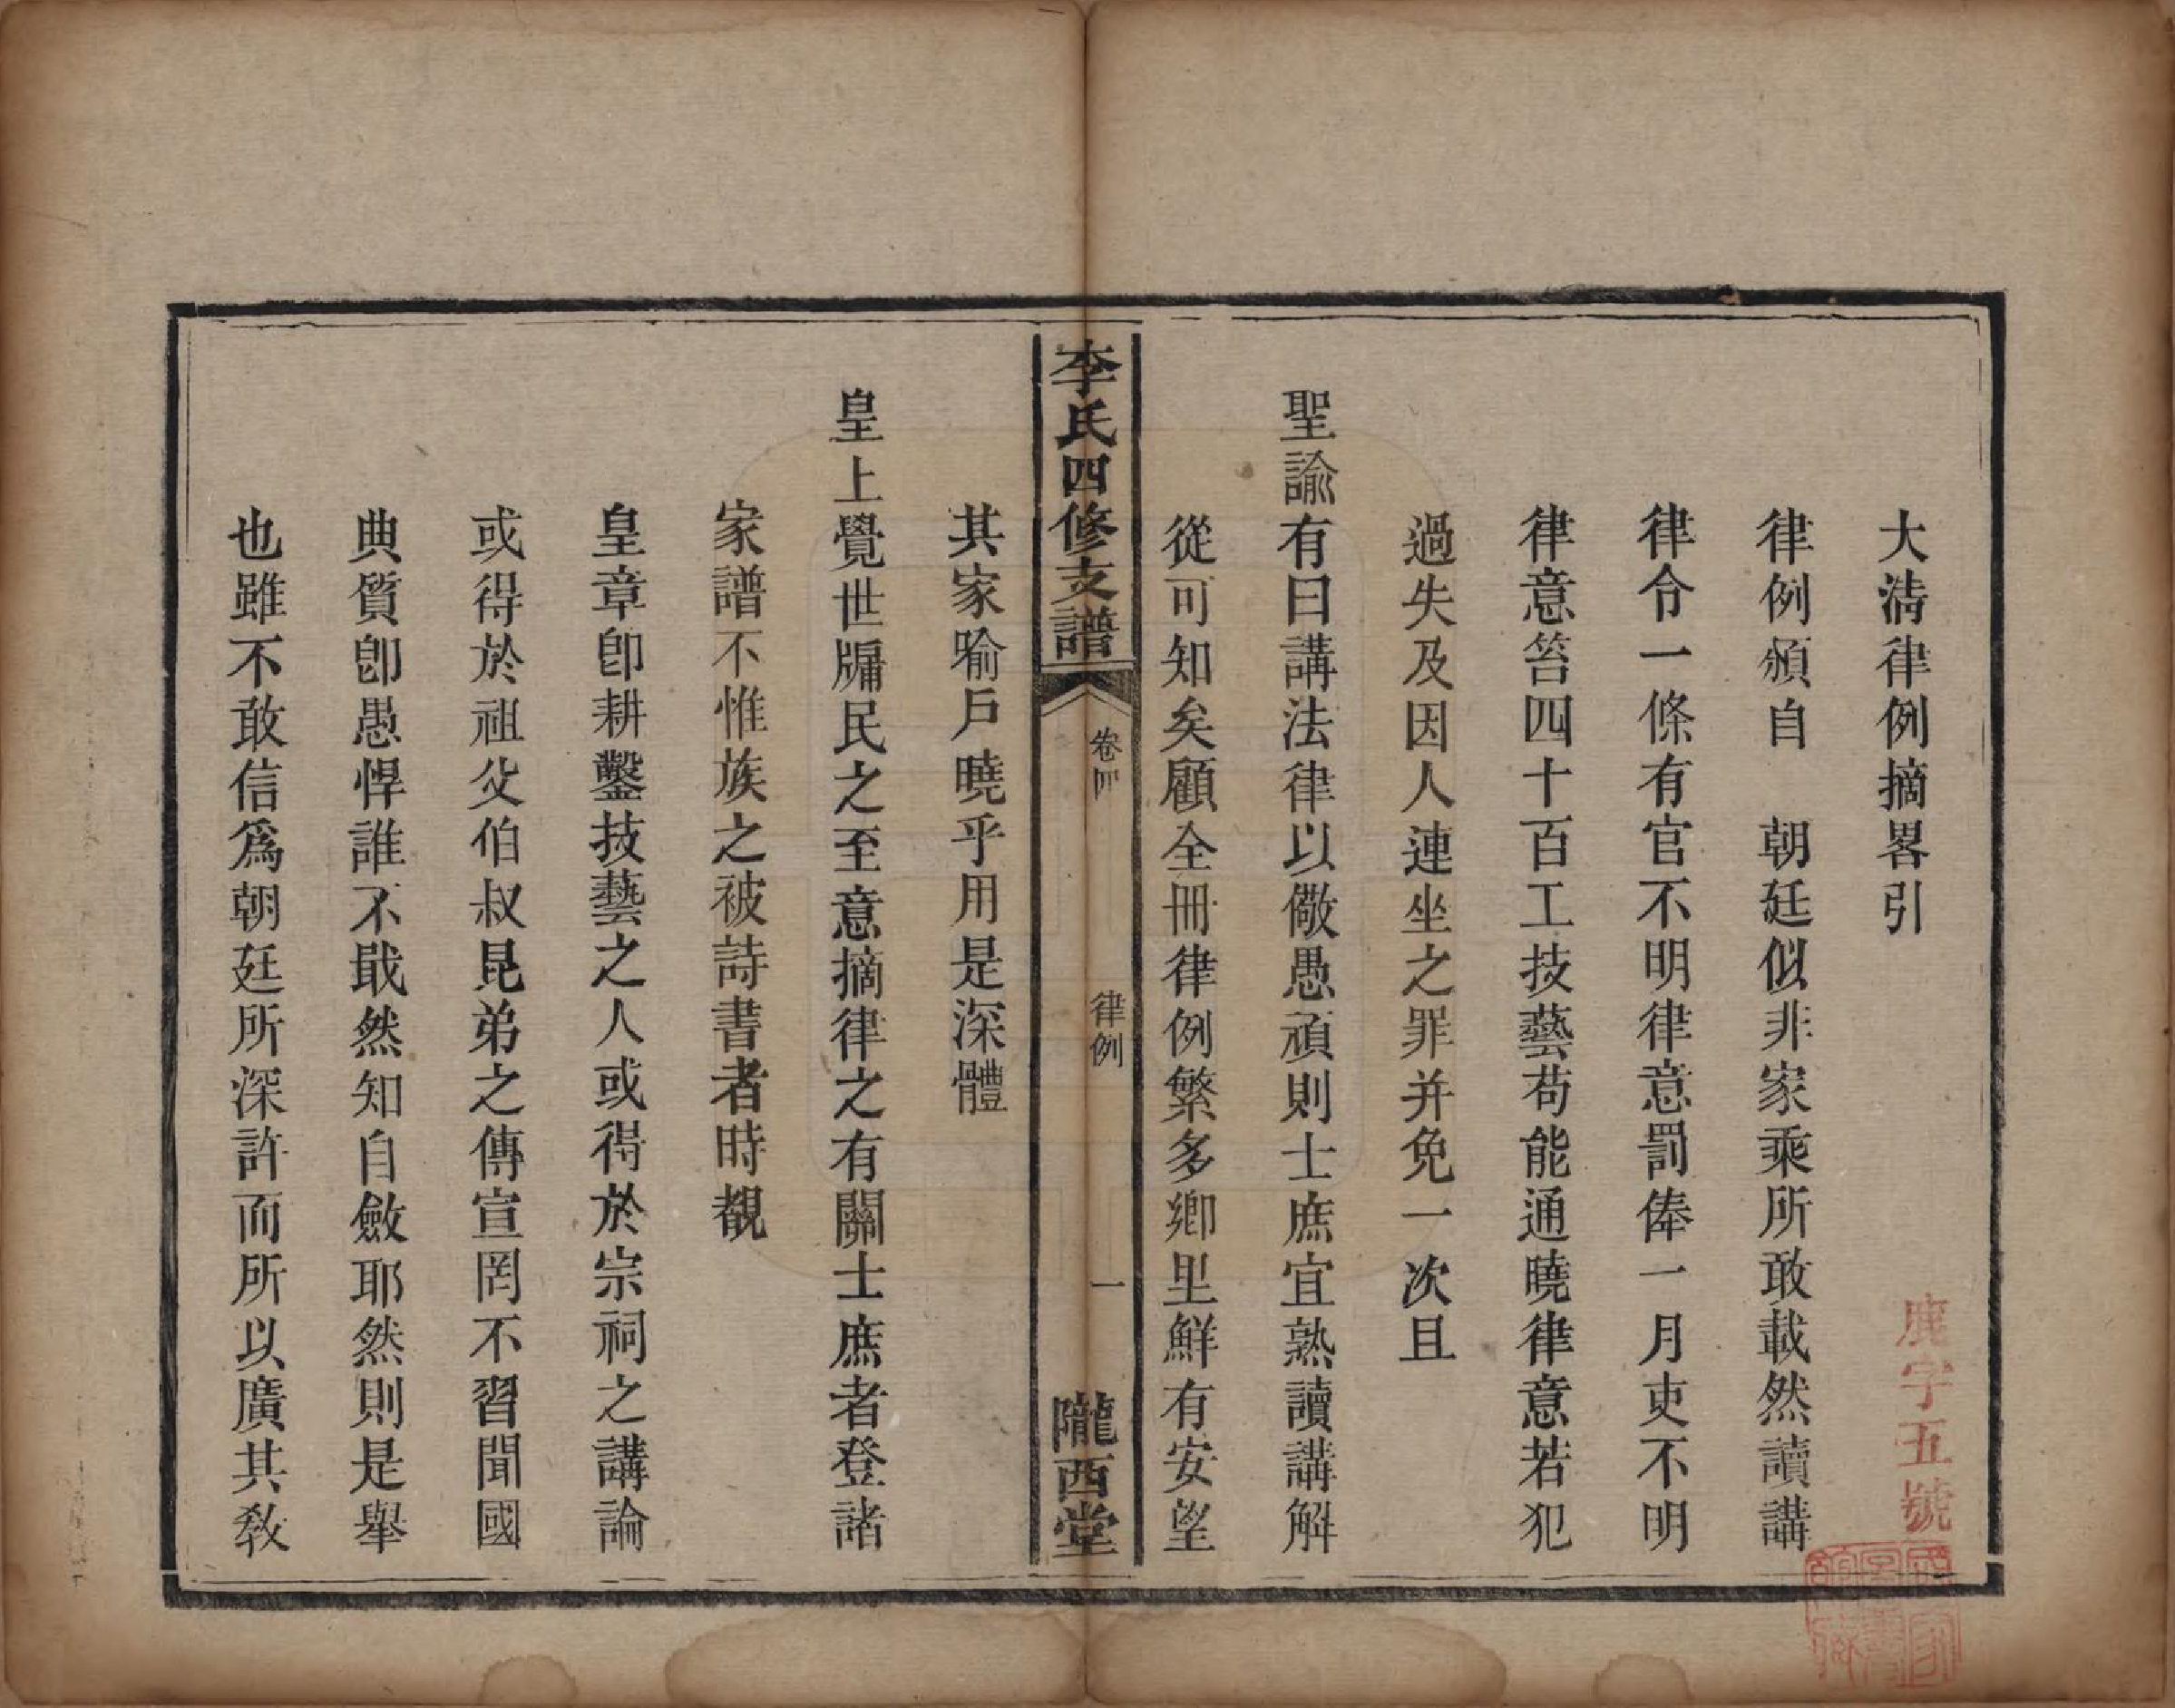 大淸律例摘畧引
律例頒自　朝廷似非家乘所敢載然讀講
律令一條有官不明律意罰俸一月吏不明
律意笞四十百工技藝苟能通曉律意若犯
過失及因人連坐之罪并免一次且
聖諭有曰講法律以儆愚頑則士庶宜熟讀講解
從可知矣顧全冊律例繁多鄉里鮮有安望
李氏四修支譜
卷四
律例
一
隴西堂
其家喻戶曉乎用是深體
皇上覺世牖民之至意摘律之有關士庶者登諸
家譜不惟族之被詩書者時覩
皇章卽耕鑿技藝之人或得於宗祠之講論
或得於祖父伯叔昆弟之傳宣罔不習聞國
典質卽愚悍誰不戢然知自斂耶然則是舉
也雖不敢信爲朝廷所深許而所以廣其敎
鹿字五號